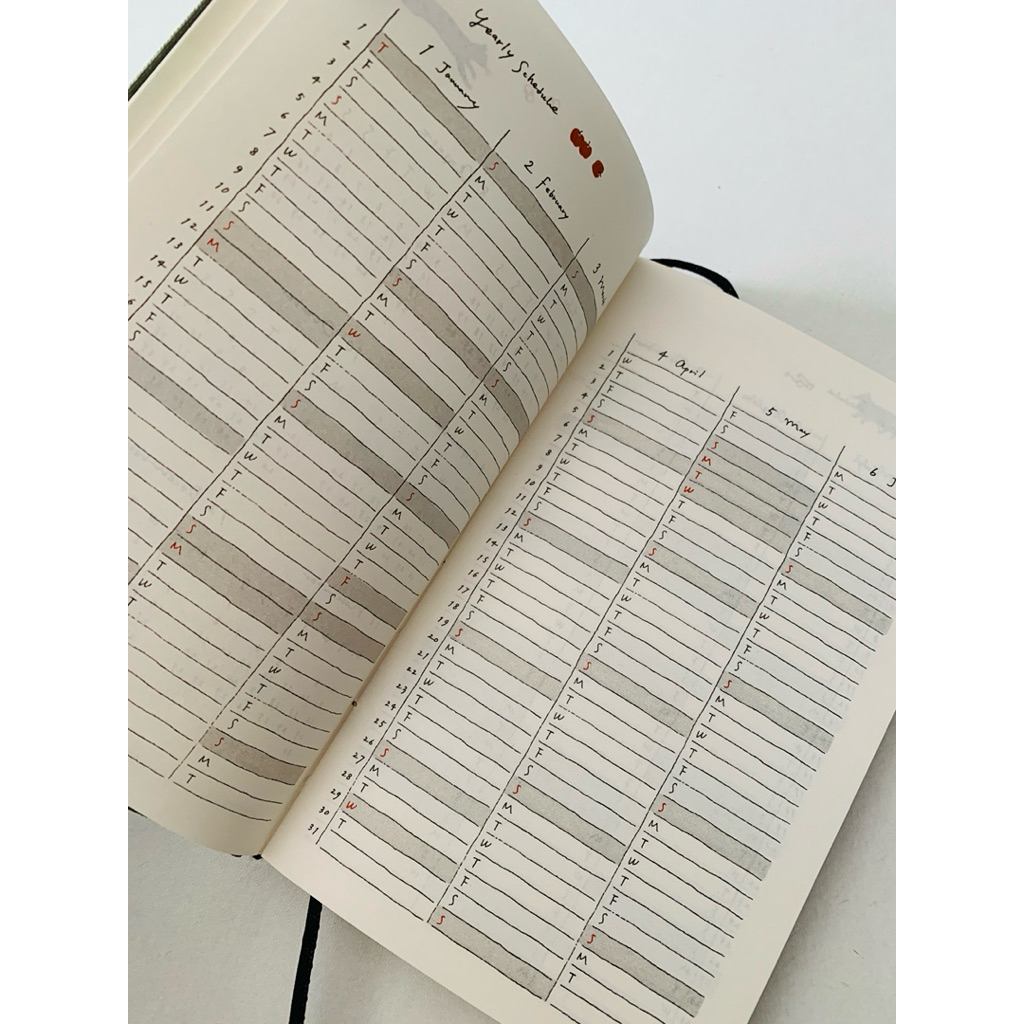 Yearly Schedule
1 January
2 February
1
2
3
4
5
6
7
8
9
10
11
12
13
14
15
T
F
S
S
M
T
W
T
F
S
S
M
T
W
T
F
S
S
M
T
W
T
F
S
S
M
T
W
T
F
S
S
M
T
W
T
F
S
S
M
T
W
T
S
M
T
W
T
F
S
S
M
T
W
T
F
S
S
M
T
W
T
F
S
S
M
T
W
T
F
S
S
M
T
4 April
5 May
6
1
2
3
4
5
6
7
8
9
10
11
12
13
14
15
16
17
18
19
20
21
22
23
24
25
26
27
28
29
30
31
W
T
F
S
S
M
T
W
T
F
S
S
M
T
W
T
F
S
S
M
T
W
T
F
S
S
M
T
W
T
F
S
S
M
T
W
T
F
S
S
M
T
W
T
F
S
S
M
T
W
T
F
S
S
M
T
W
T
F
S
S
M
T
W
T
F
S
S
M
T
W
T
F
S
S
M
T
W
T
F
S
S
M
T
W
T
F
S
S
M
T